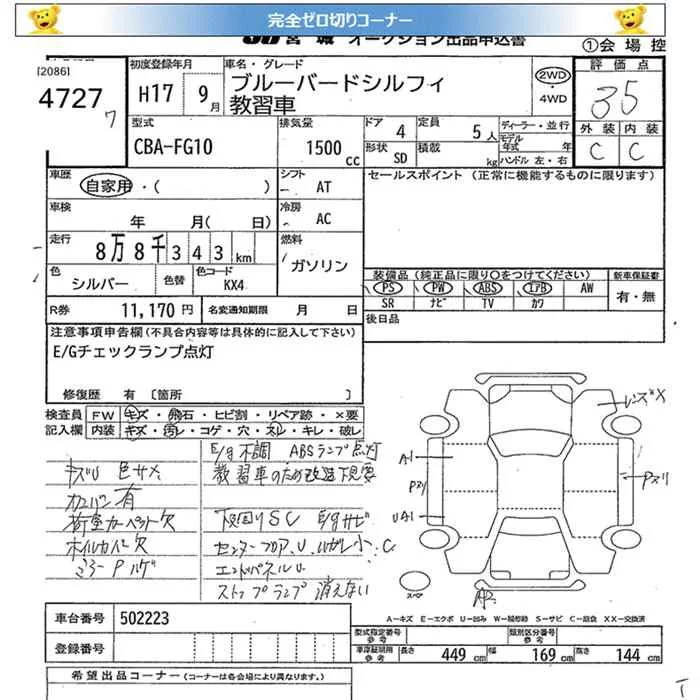 完全ゼロ切りコーナー
JU 宮城 オークション出品申込書
①会場控
[2086]
4727
7
初度登録年月
H17 9月
車名・グレード
ブルーバードシルフィ
教習車
2WD
・
4WD
評価点
35
外装 内装
C C
型式
CBA-FG10
排気量
1500cc
ドア 4
定員 5人
形状 SD
積載 kg
ディーラー・並行
モデル年式 年
ハンドル 左・右
車歴
自家用・( )
シフト
AT
セールスポイント (正常に機能するものに限ります)
車検
年 月(日)
冷房
AC
走行
8万8千343km
燃料
ガソリン
色
シルバー
色替
色コード
KX4
装備品(純正品に限り〇をつけてください)
PS PW ABS エアB AW
SR ナビ TV カワ
新車保証書
有・無
R券 11,170円
名変通知期限 月 日
後日品
注意事項申告欄(不具合内容等は具体的に記入して下さい)
E/Gチェックランプ点灯
修復歴 有 [箇所 ]
検査員 FW キズ・飛石・ヒビ割・リペア跡・×要
記入欄 内装 キズ・汚レ・コゲ・穴・スレ・キレ・破レ
E/g不調 ABSランプ点灯
キズU 色サメ
教習車のため改造下見要
有
荷室カーペット欠
下回りSC E/gサビ
ホイルカバー欠
センターフロア.U.
小.C
ミラーPハゲ
エンドパネルU
ストップランプ消えない
レンズX
A1
UA1
スペア
A-キズ E-エクボ U-凹み W-補修跡 S-サビ C-腐食 XX-交換済
車台番号 502223
登録番号
型式指定番号
参考
類別区分番号
参考
車庫証明用
参考
長さ 449 幅 169 高さ 144
希望出品コーナー (コーナーは各会場により異なります。)